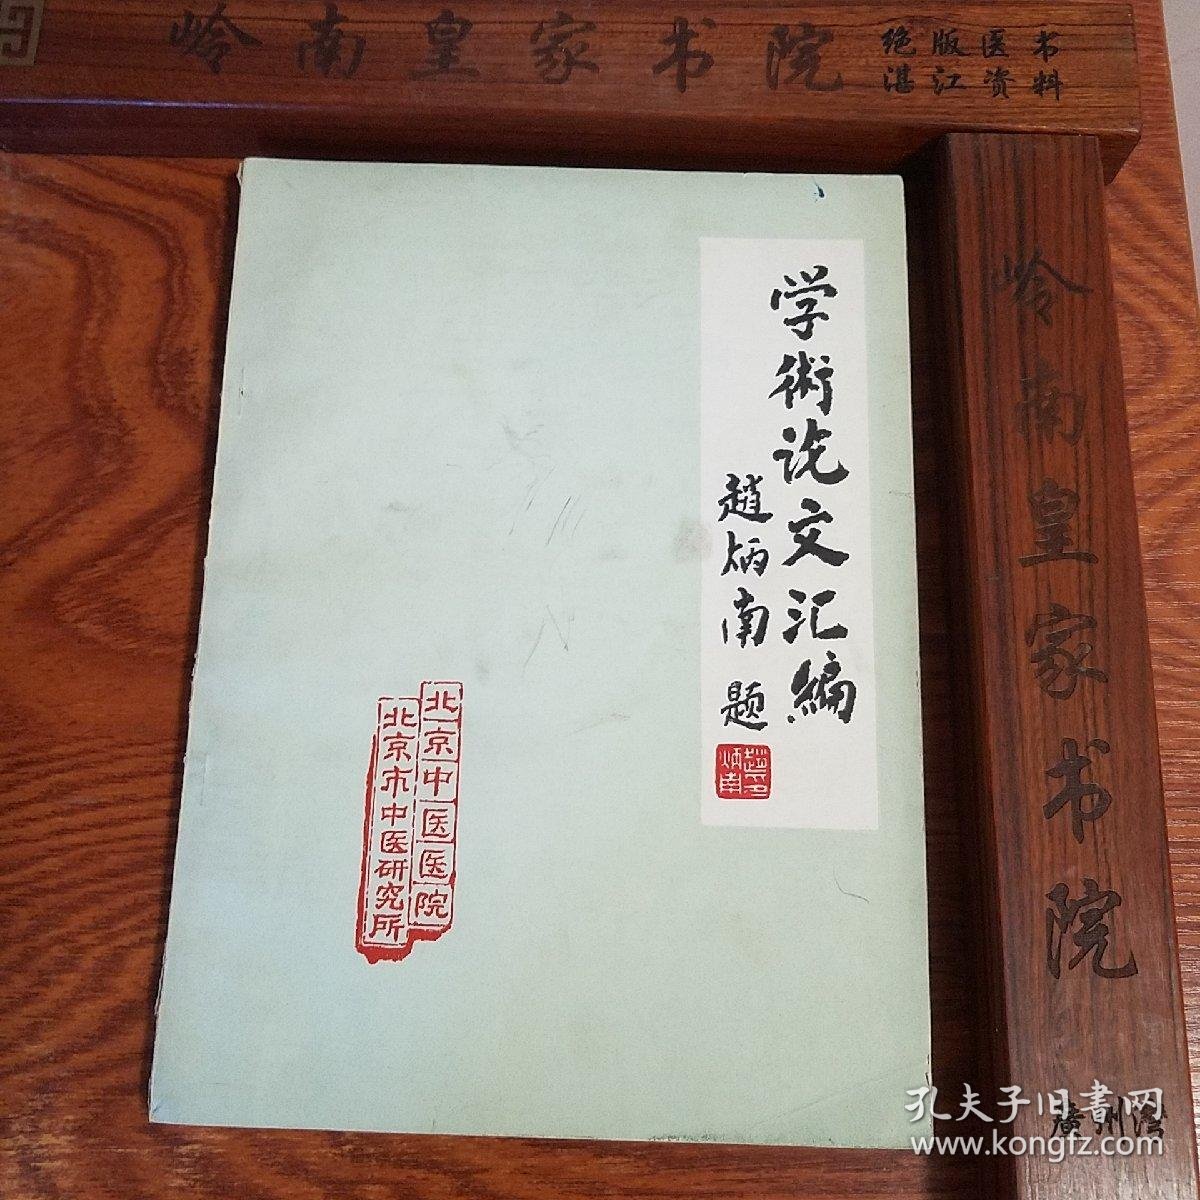 岭南皇家书院
绝版医书
湛江资料
学術论文汇编
趙炳南题
趙炳南印
北京中医医院
北京市中医研究所
岭南皇家书院
廣州灣
孔夫子旧書网
www.kongfz.com